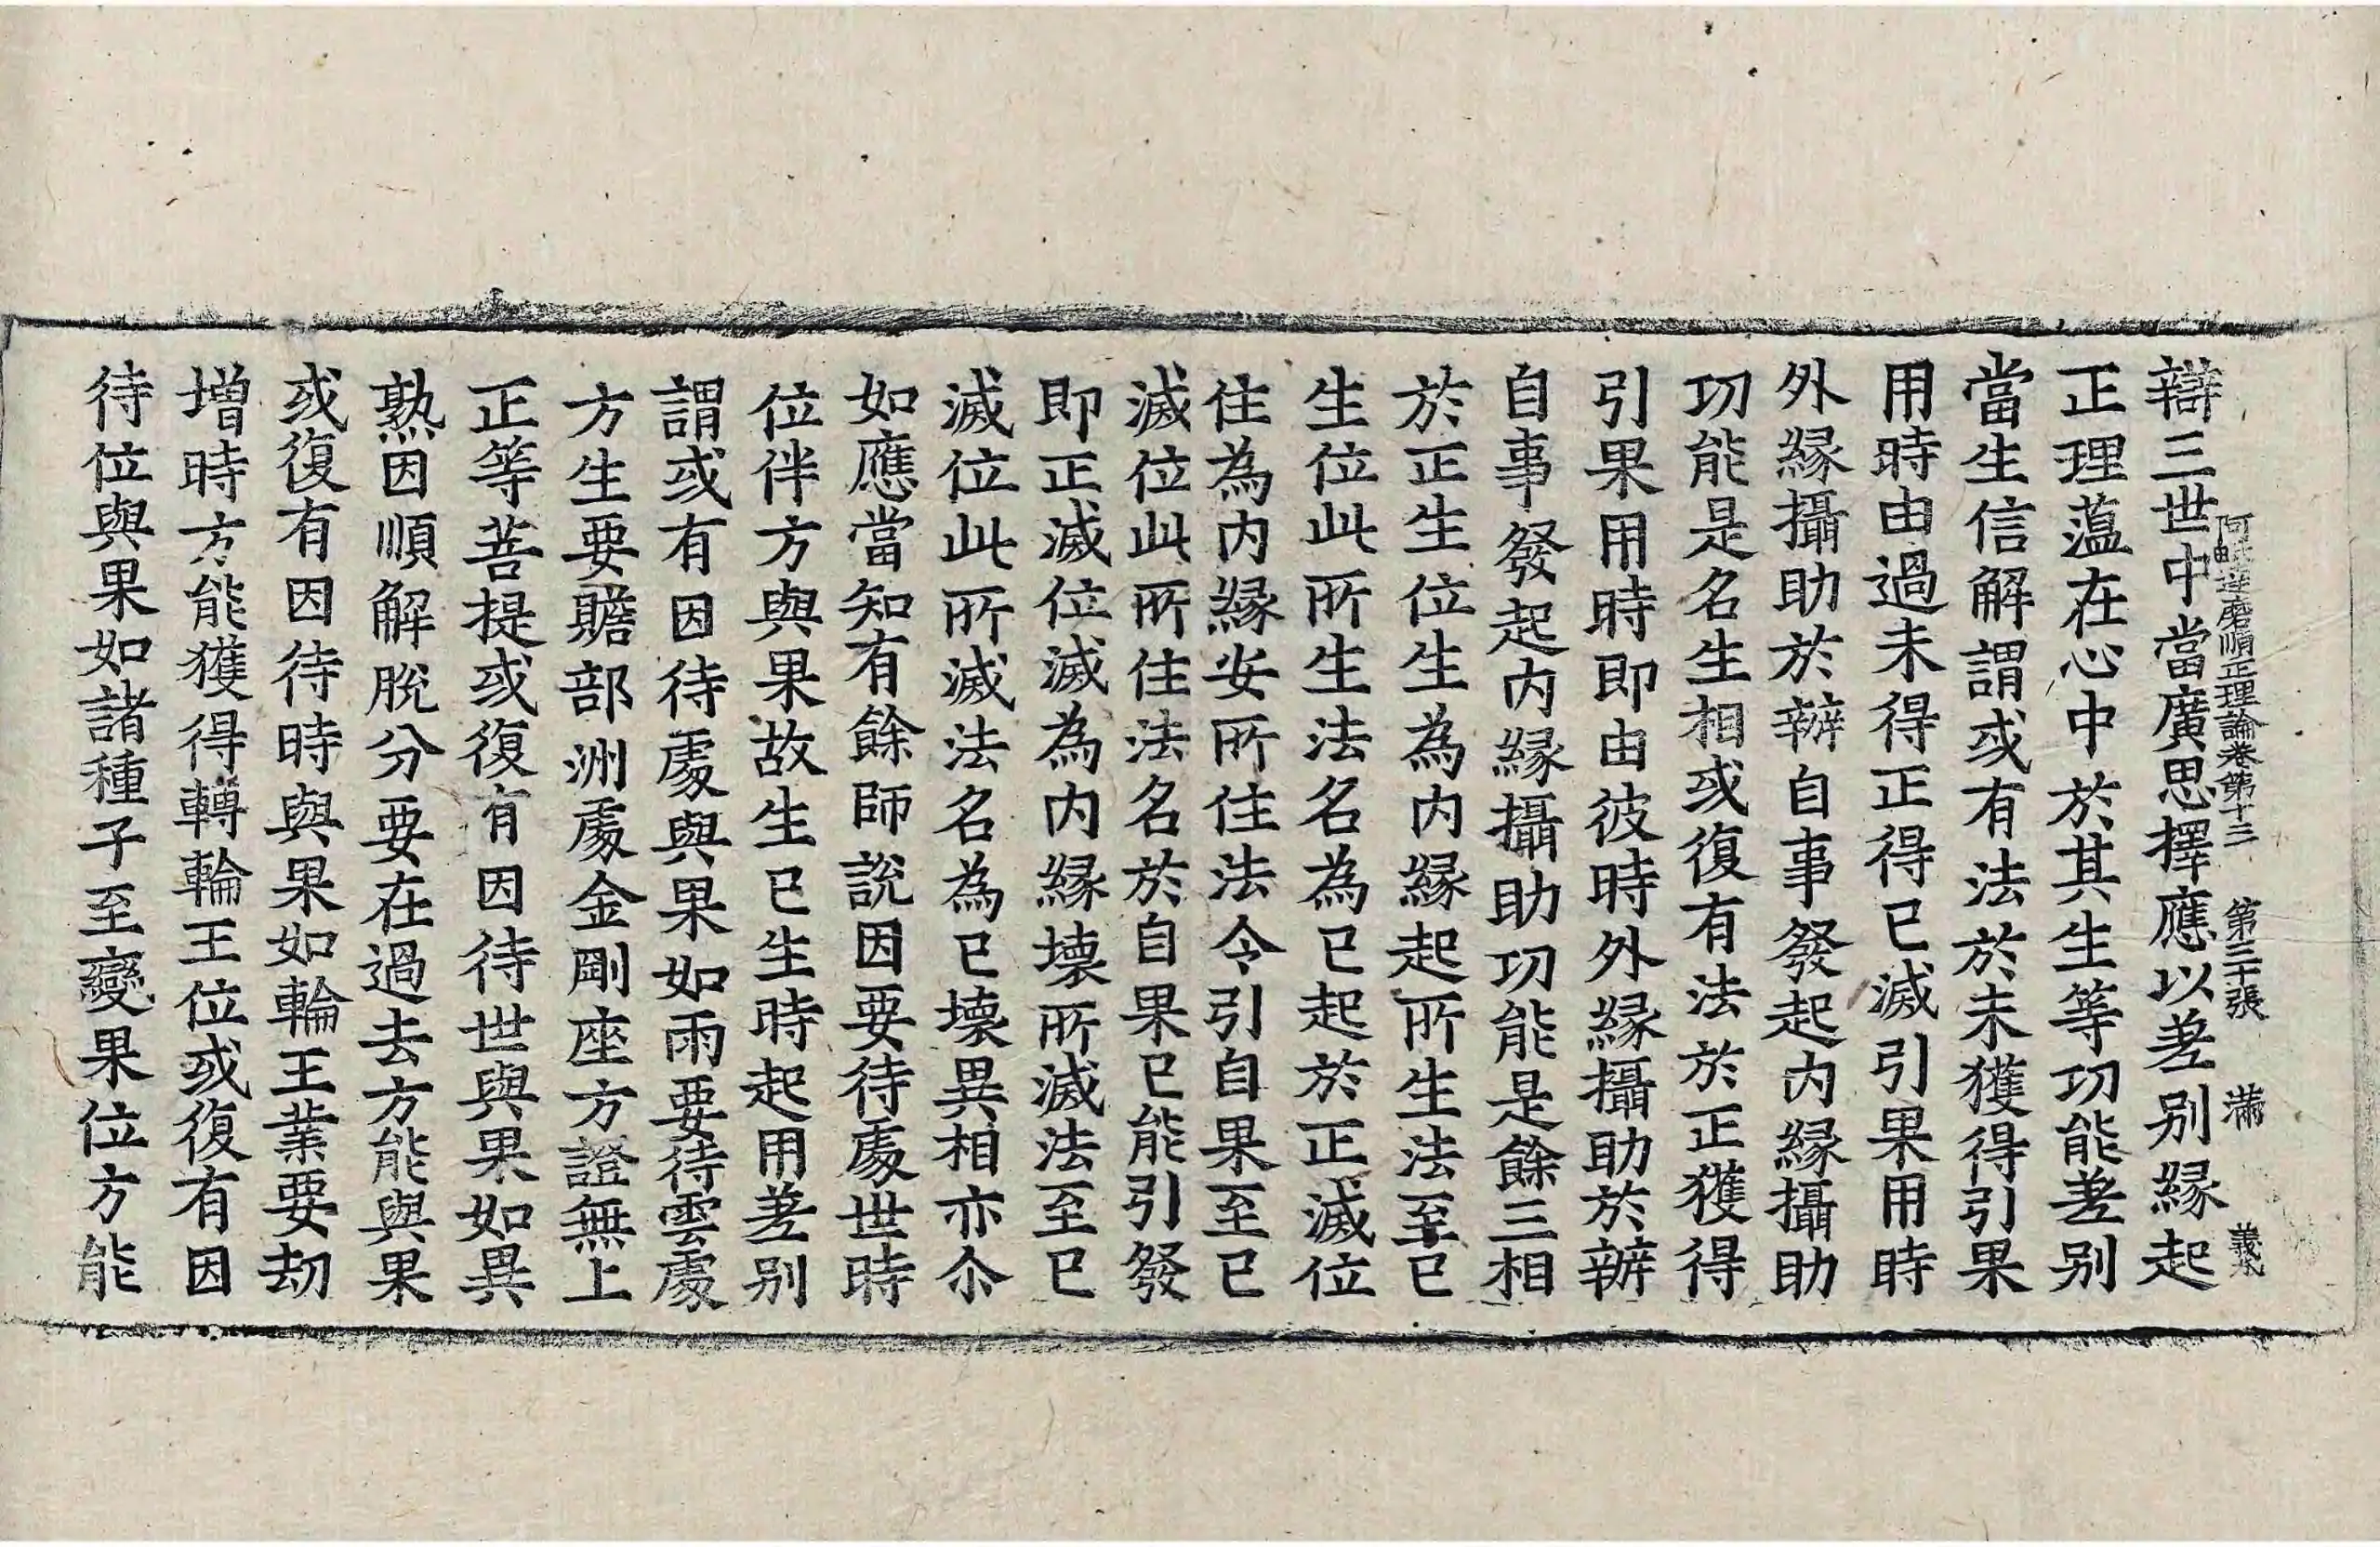 阿毗達磨順正理論卷第十三 第三十張 滿 義
辯三世中當廣思擇應以差别緣起
正理蘊在心中於其生等功能差别
當生信解謂或有法於未獲得引果
用時由過未得正得已滅引果用時
外緣攝助於辦自事發起内緣攝助
功能是名生相或復有法於正獲得
引果用時即由彼時外緣攝助於辦
自事發起内緣攝助功能是餘三相
於正生位生為内緣起所生法至已
生位此所生法名為已起於正滅位
住為内緣安所住法令引自果至已
滅位此所住法名於自果已能引發
即正滅位滅為内緣壞所滅法至已
滅位此所滅法名為已壞異相亦尒
如應當知有餘師説因要待處世時
位伴方與果故生已生時起用差别
謂或有因待處與果如雨要待雲處
方生要贍部洲處金剛座方證無上
正等菩提或復有因待世與果如異
熟因順解脱分要在過去方能與果
或復有因待時與果如輪王業要劫
增時方能獲得轉輪王位或復有因
待位與果如諸種子至變果位方能